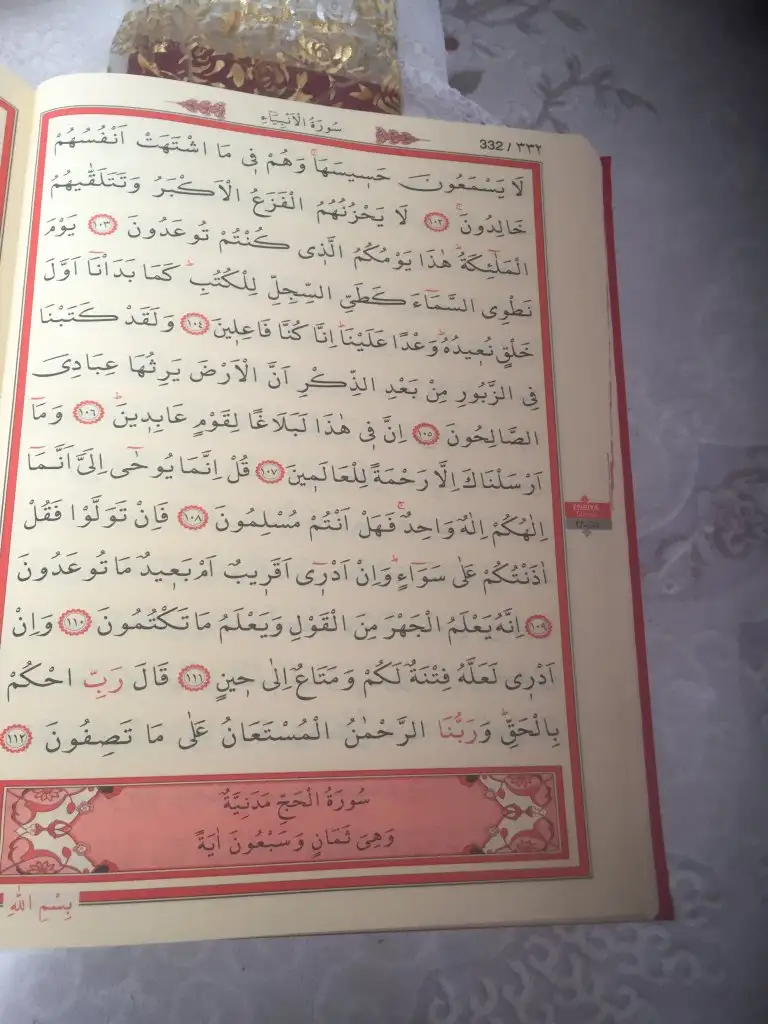 سُورَةُ الْاَنْبِيَٓاءِ
332 / ٣٣٢
لَا يَسْمَعُونَ حَس۪يسَهَاۚ وَهُمْ ف۪ي مَا اشْتَهَتْ اَنْفُسُهُمْ
خَالِدُونَۚ ﴿١٠٢﴾ لَا يَحْزُنُهُمُ الْفَزَعُ الْاَكْبَرُ وَتَتَلَقّٰيهُمُ
الْمَلٰٓئِكَةُۜ هٰذَا يَوْمُكُمُ الَّذ۪ي كُنْتُمْ تُوعَدُونَ ﴿١٠٣﴾ يَوْمَ
نَطْوِي السَّمَٓاءَ كَطَيِّ السِّجِلِّ لِلْكُتُبِۜ كَمَا بَدَأْنَٓا اَوَّلَ
خَلْقٍ نُع۪يدُهُۜ وَعْدًا عَلَيْنَاۜ اِنَّا كُنَّا فَاعِل۪ينَ ﴿١٠٤﴾ وَلَقَدْ كَتَبْنَا
فِي الزَّبُورِ مِنْ بَعْدِ الذِّكْرِ اَنَّ الْاَرْضَ يَرِثُهَا عِبَادِيَ
الصَّالِحُونَ ﴿١٠٥﴾ اِنَّ ف۪ي هٰذَا لَبَلَاغًا لِقَوْمٍ عَابِد۪ينَۜ ﴿١٠٦﴾ وَمَٓا
اَرْسَلْنَاكَ اِلَّا رَحْمَةً لِلْعَالَم۪ينَ ﴿١٠٧﴾ قُلْ اِنَّمَا يُوحٰٓى اِلَيَّ اَنَّمَٓا
اِلٰهُكُمْ اِلٰهٌ وَاحِدٌۚ فَهَلْ اَنْتُمْ مُسْلِمُونَ ﴿١٠٨﴾ فَاِنْ تَوَلَّوْا فَقُلْ
اٰذَنْتُكُمْ عَلٰى سَوَٓاءٍۜ وَاِنْ اَدْر۪ٓي اَقَر۪يبٌ اَمْ بَع۪يدٌ مَا تُوعَدُونَ
﴿١٠٩﴾ اِنَّهُ يَعْلَمُ الْجَهْرَ مِنَ الْقَوْلِ وَيَعْلَمُ مَا تَكْتُمُونَ ﴿١١٠﴾ وَاِنْ
اَدْر۪ي لَعَلَّهُ فِتْنَةٌ لَكُمْ وَمَتَاعٌ اِلٰى ح۪ينٍ ﴿١١١﴾ قَالَ رَبِّ احْكُمْ
بِالْحَقِّۜ وَرَبُّنَا الرَّحْمٰنُ الْمُسْتَعَانُ عَلٰى مَا تَصِفُونَ ﴿١١٢﴾
سُورَةُ الْحَجِّ مَدَنِيَّةٌ
وَهِيَ ثَمَانٍ وَسَبْعُونَ اٰيَةً
بِسْمِ اللّٰهِ
ENBİYA